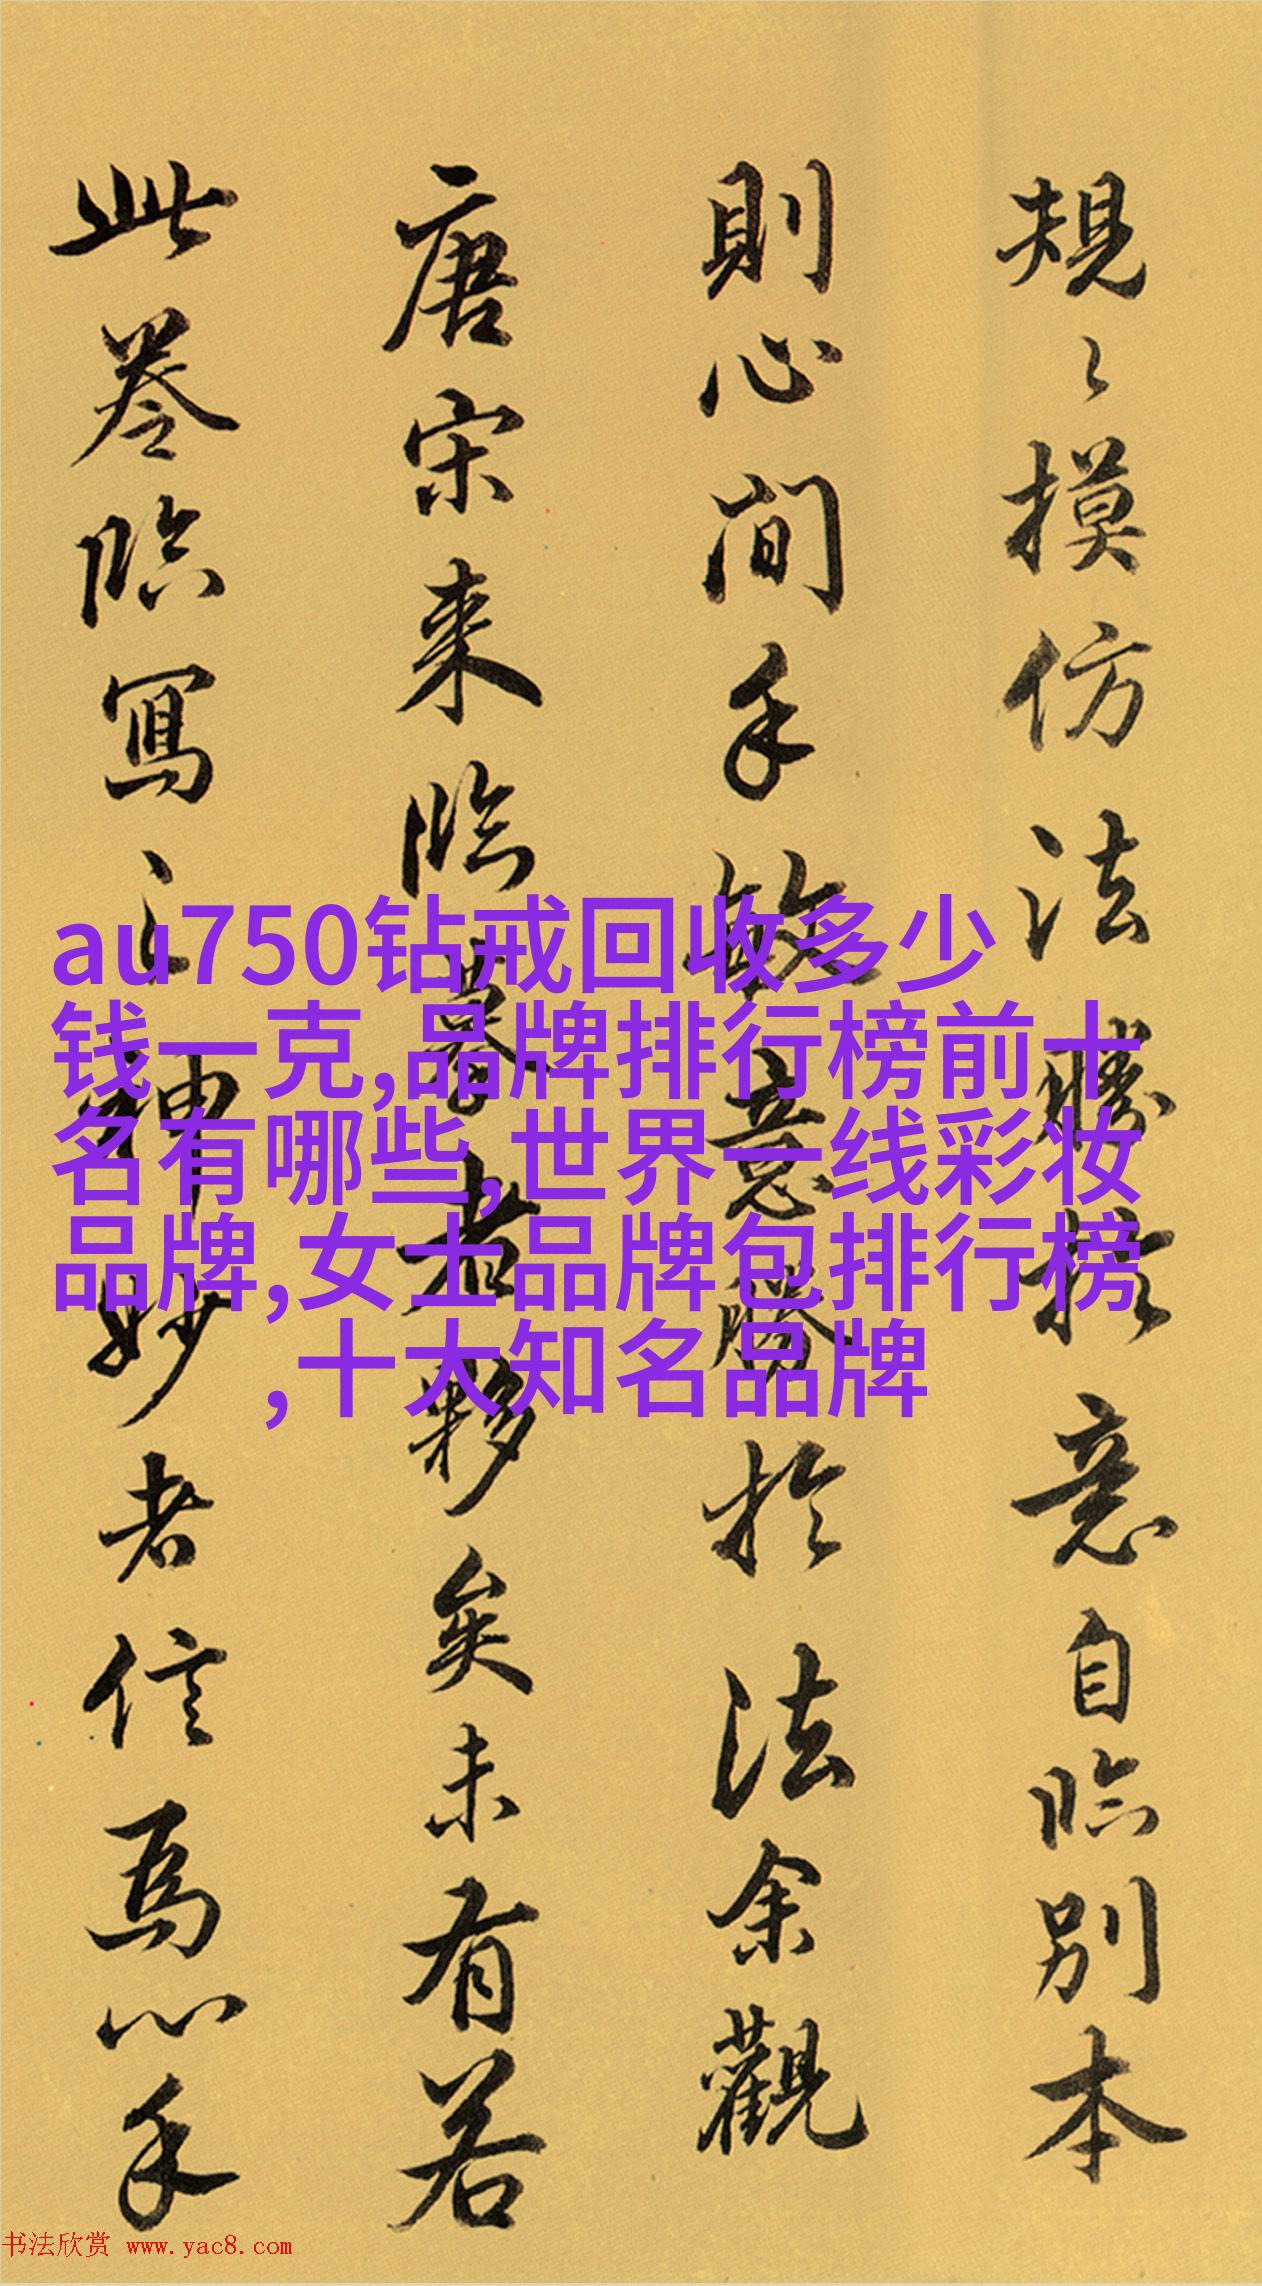 規〻摸仿法勝於意自臨别本
則心間手敏意勝於法余觀
唐宋来臨摹者夥矣未有若
此卷臨寫之神妙者信乎心手
au750钻戒回收多少
钱一克,品牌排行榜前十
名有哪些,世界一线彩妆
品牌,女士品牌包排行榜
,十大知名品牌
书法欣赏 www.yac8.com